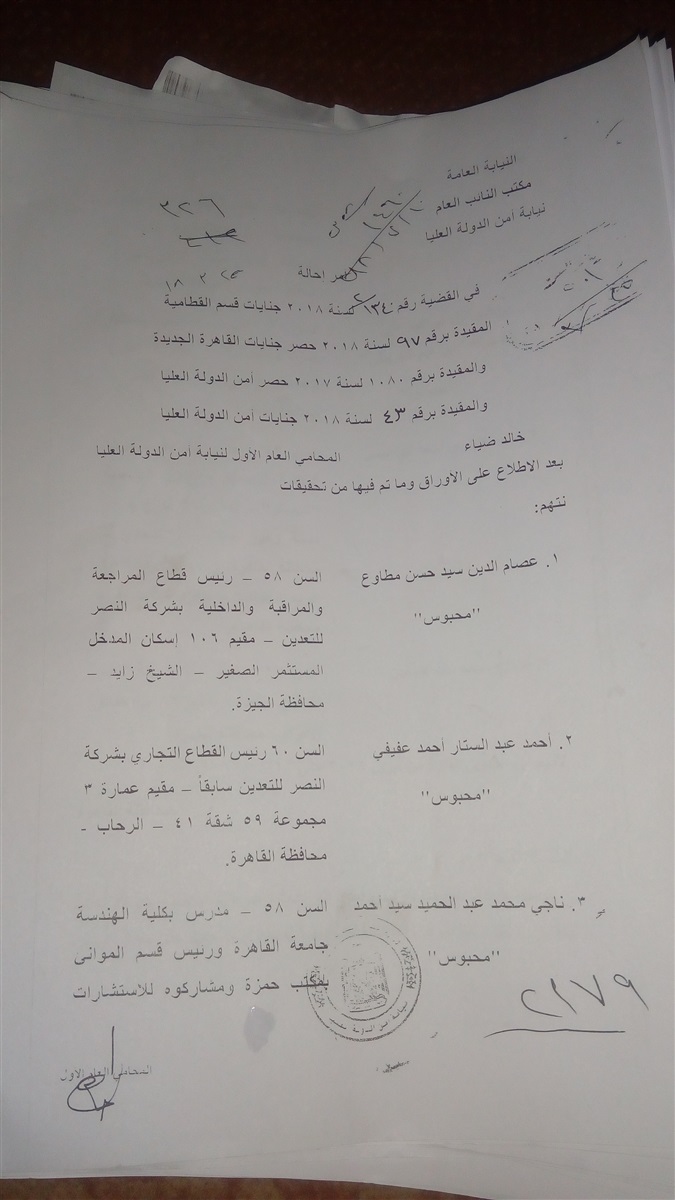 النيابة العامة
مكتب النائب العام
نيابة أمن الدولة العليا
٣٢٦
أمر إحالة
في القضية رقم ١٣٤٠ لسنة ٢٠١٨ جنايات قسم القطامية
المقيدة برقم ٩٧ لسنة ٢٠١٨ حصر جنايات القاهرة الجديدة
والمقيدة برقم ١٠٨٠ لسنة ٢٠١٧ حصر أمن الدولة العليا
والمقيدة برقم ٤٣ لسنة ٢٠١٨ جنايات أمن الدولة العليا
خالد ضياء المحامي العام الأول لنيابة أمن الدولة العليا
بعد الاطلاع على الأوراق وما تم فيها من تحقيقات
نتهم:
١. عصام الدين سيد حسن مطاوع
"محبوس"
السن ٥٨ – رئيس قطاع المراجعة
والمراقبة والداخلية بشركة النصر
للتعدين – مقيم ١٠٦ إسكان المدخل
المستثمر الصغير – الشيخ زايد –
محافظة الجيزة.
٢. أحمد عبد الستار أحمد عفيفي
"محبوس"
السن ٦٠ رئيس القطاع التجاري بشركة
النصر للتعدين سابقاً – مقيم عمارة ٣
مجموعة ٥٩ شقة ٤١ – الرحاب -
محافظة القاهرة.
٣. ناجي محمد عبد الحميد سيد أحمد
"محبوس"
السن ٥٨ – مدرس بكلية الهندسة
جامعة القاهرة ورئيس قسم الموانى
بمكتب حمزة ومشاركوه للاستشارات
نيابة أمن الدولة
المحامي العام الأول